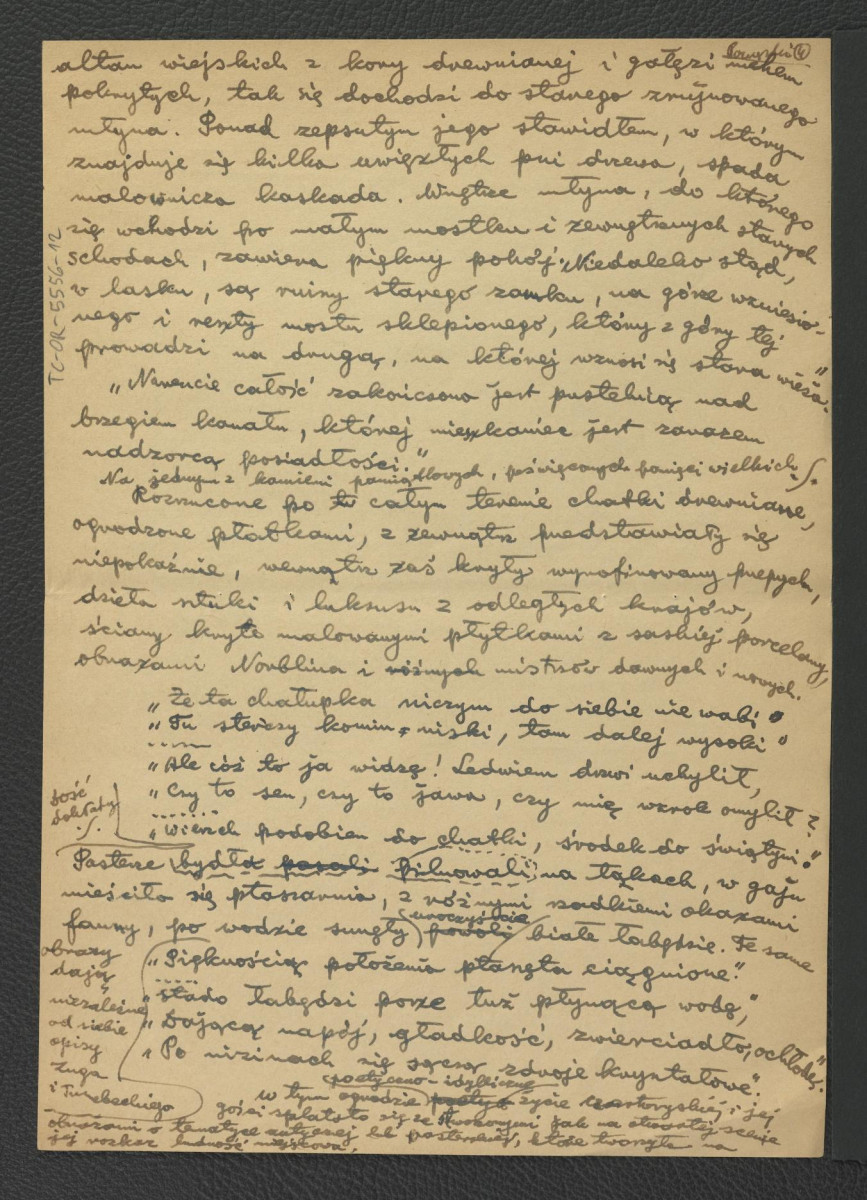 Powązki ④
altan wiejskich z kory drewnianej i gałęzi mchem
pokrytych, tak się dochodzi do starego zrujnowanego
młyna. Ponad zepsutym jego stawidłem, w którym
znajduje się kilka uwięzłych pni drzewa, spada
malownicza kaskada. Wnętrze młyna, do którego
się wchodzi po małym mostku i zewnętrznych starych
schodach, zawiera piękny pokój. Niedaleko stąd,
w lasku, są ruiny starego zamku, na górze wzniesio-
nego i reszty mostu sklepionego, który z góry tej
prowadzi na drugą, na której wznosi się stara wieża."
"Nareszcie całość zakończona jest pustelnią nad
brzegiem kanału, której mieszkaniec jest zarazem
nadzorcą posiadłości."
Na jednym z kamieni pamiątkowych, poświęconych pamięci wielkich
Rozrzucone po całym terenie chatki drewniane,
ogrodzone płotkami, z zewnątrz przedstawiały się
niepokaźnie, wewnątrz zaś kryły wyrafinowany przepych,
dzieła sztuki i luksusu z odległych krajów,
ściany kryte malowanymi płytkami z saskiej porcelany,
obrazami Norblina i różnych mistrzów dawnych i nowych.
"Że ta chałupka niczym do siebie nie wabi"
"Tu sterczy komin niski, tam dalej wysoki"
"Ale cóż to ja widzę! Ledwiem drzwi uchylił,
"Czy to sen, czy to jawa, czy mię wzrok omylił?
"Wierzch podobien do chatki, środek do świątyni."
dość
dokłady
Pasterze bydła pasali pilnowali na łąkach, w gaju
mieściła się ptaszarnia, z różnymi rzadkiemi okazami
fauny, po wodzie sunęły powoli uroczyście białe łabędzie. Te same
"Pięknością położenia ptaszęta ciągnione."
"Stado łabędzi porze tuż płynącą wodę,"
"Dającą napój, gładkość, zwierciadło, ochłodę."
"Po nizinach się sączą zdroje kryształowe".
obrazy
dają
niezależne
od siebie
opisy
Zuga
i Trembeckiego
poetyczno-idylliczne
w tym ogrodzie życie Czartoryskiej i jej
gości splatało się ze stworzonymi jak na otwartej scenie
obrazami o tematyce antycznej lub pasterskiej, które tworzyła na
jej rozkaz ludność miejscowa.
TC-OR-5556-12